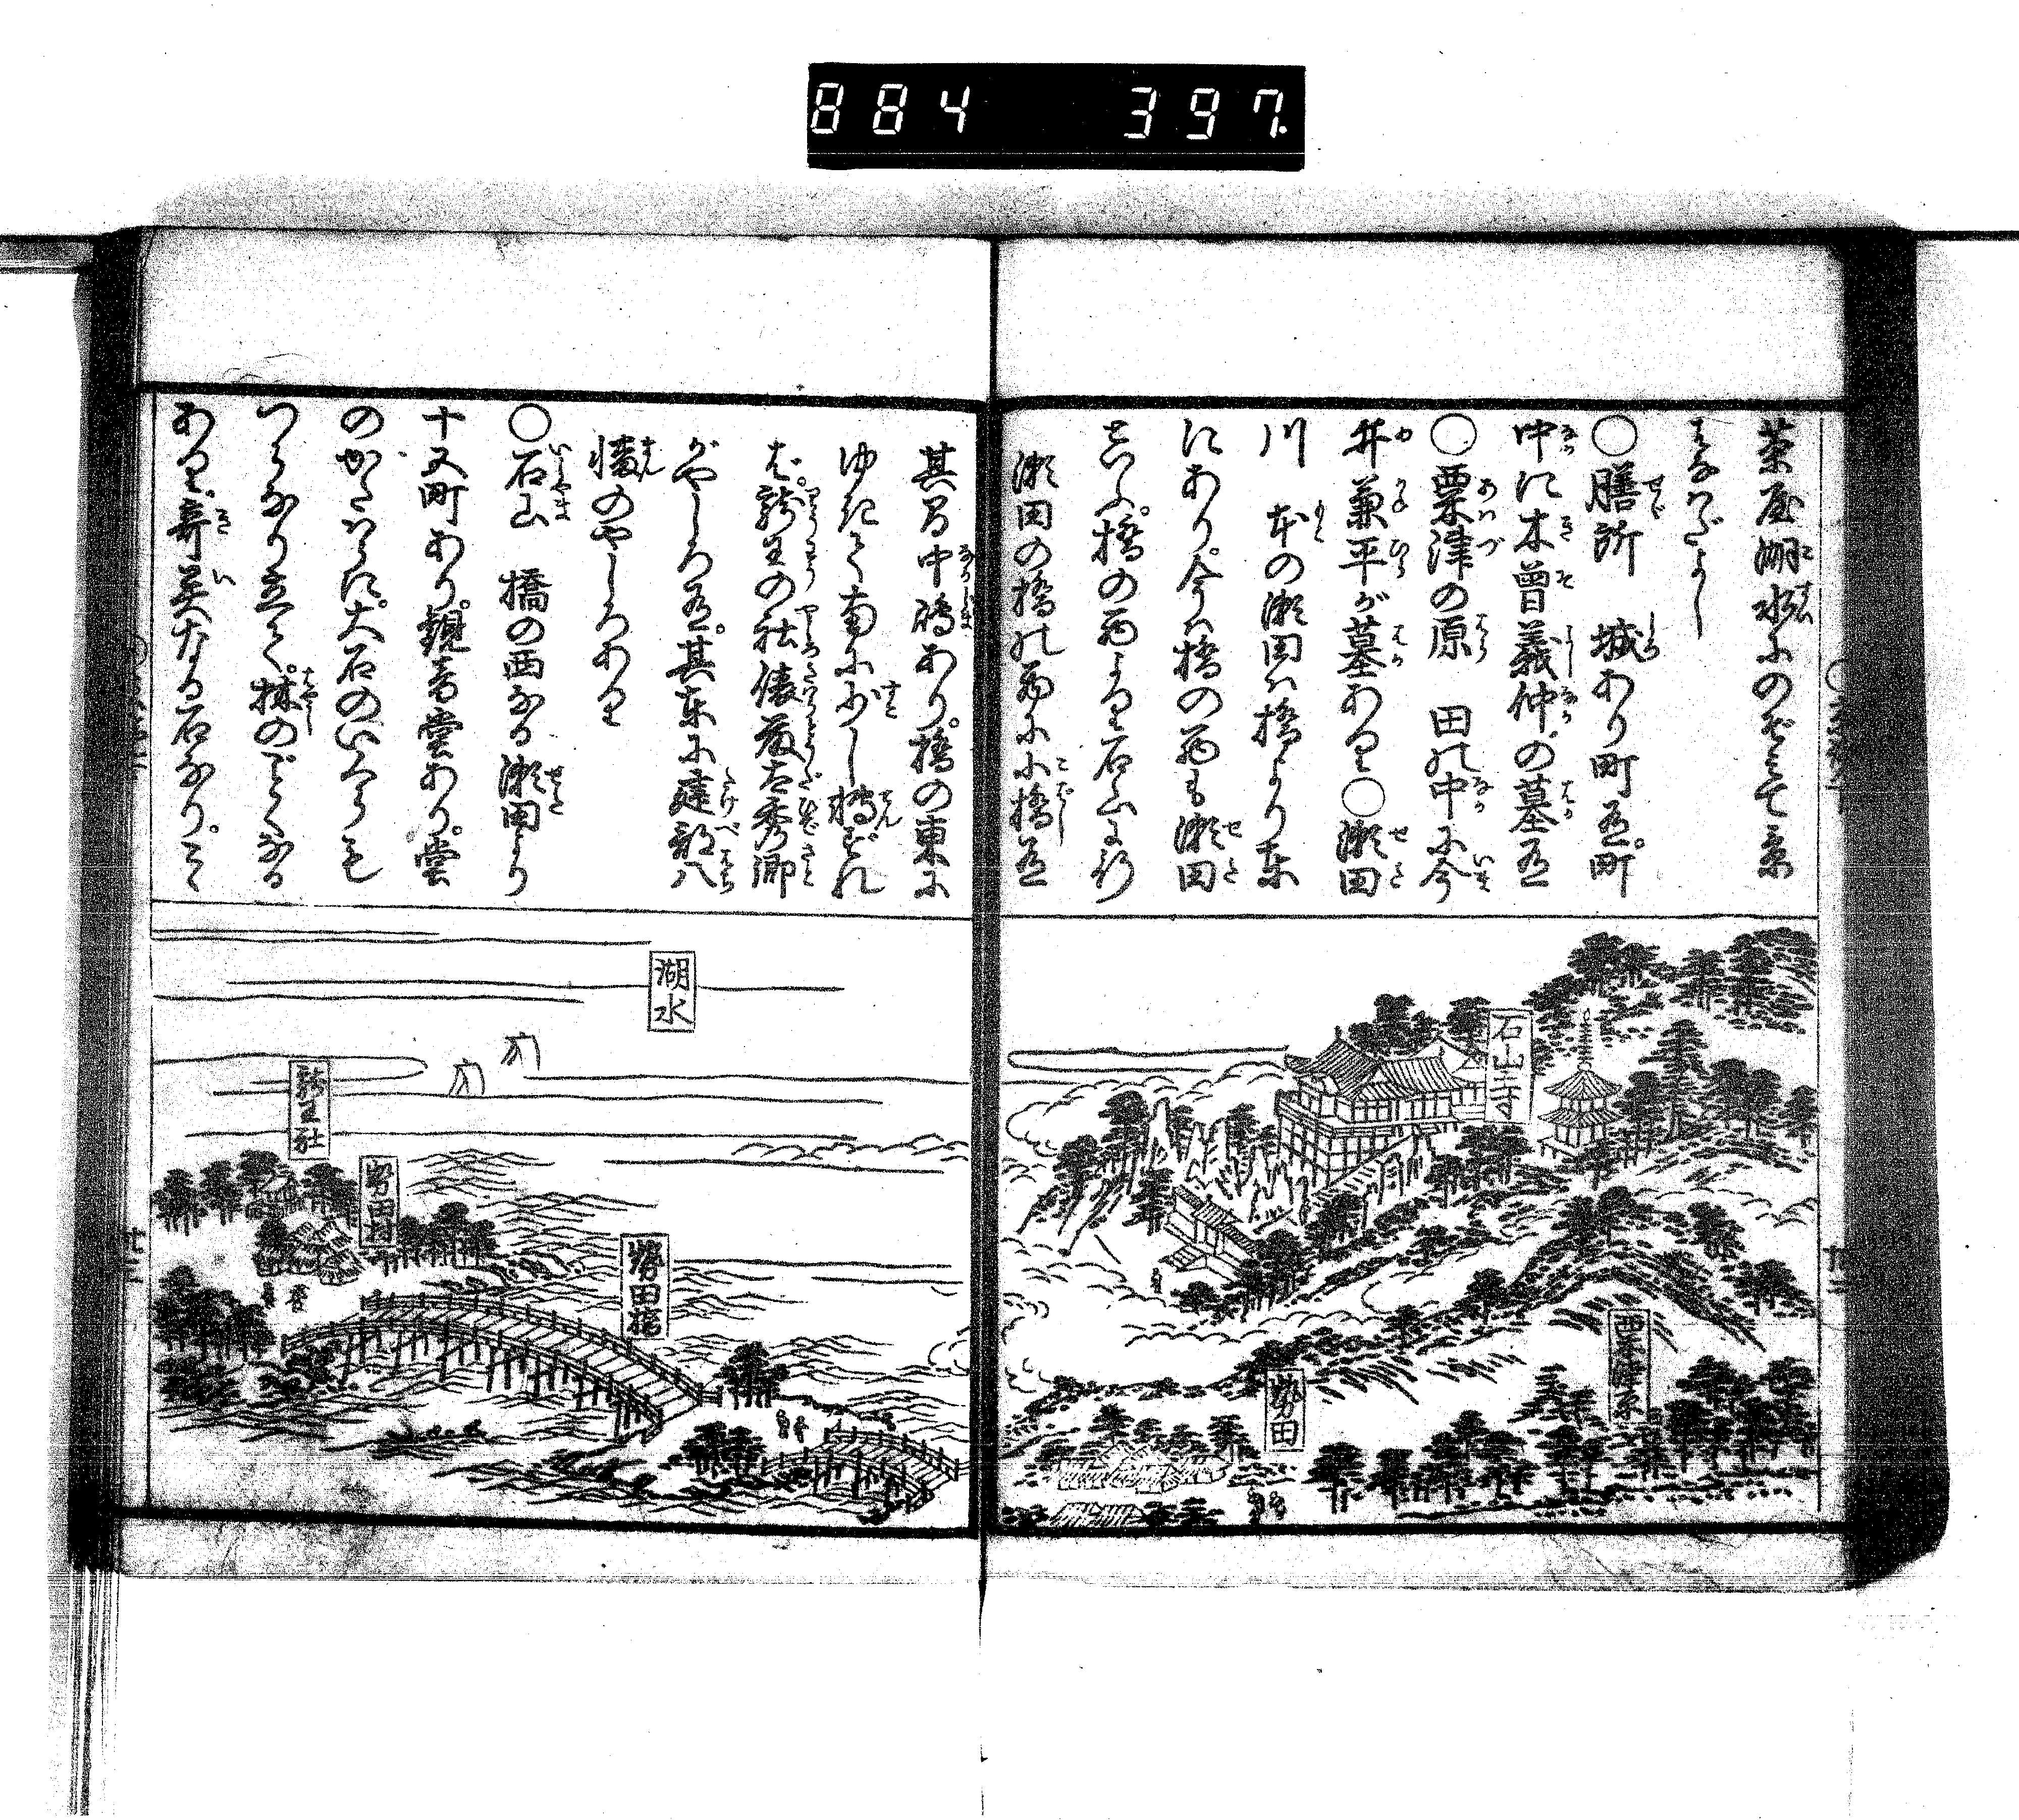 884 397
茶屋湖水にのぞミて景
はなハだよし
〇膳所 城あり町有。町
中に木曾義仲の墓有
〇粟津の原 田の中に今
井兼平が墓あり〇瀬田
川 本の瀬田ハ橋より東
にあり。今ハ橋の西も瀬田
といふ。橋の西より石山に行
瀬田の橋の西に小橋有
其間中嶋あり。橋の東に
ゆきて南に少し橋づめ
に。龍王の社俵藤太秀郷
がやしろ有。其東に建部八
幡のやしろあり
〇石山 橋の西なる瀬田より
十五町あり。観音堂あり。堂
のかたハらに。大石のいくらも
つらなり立て。林のごとくなる
あり。奇異なる石なり。こゝ
石山寺
西粟津原
勢田
湖水
龍王社
勢田村
勢田橋